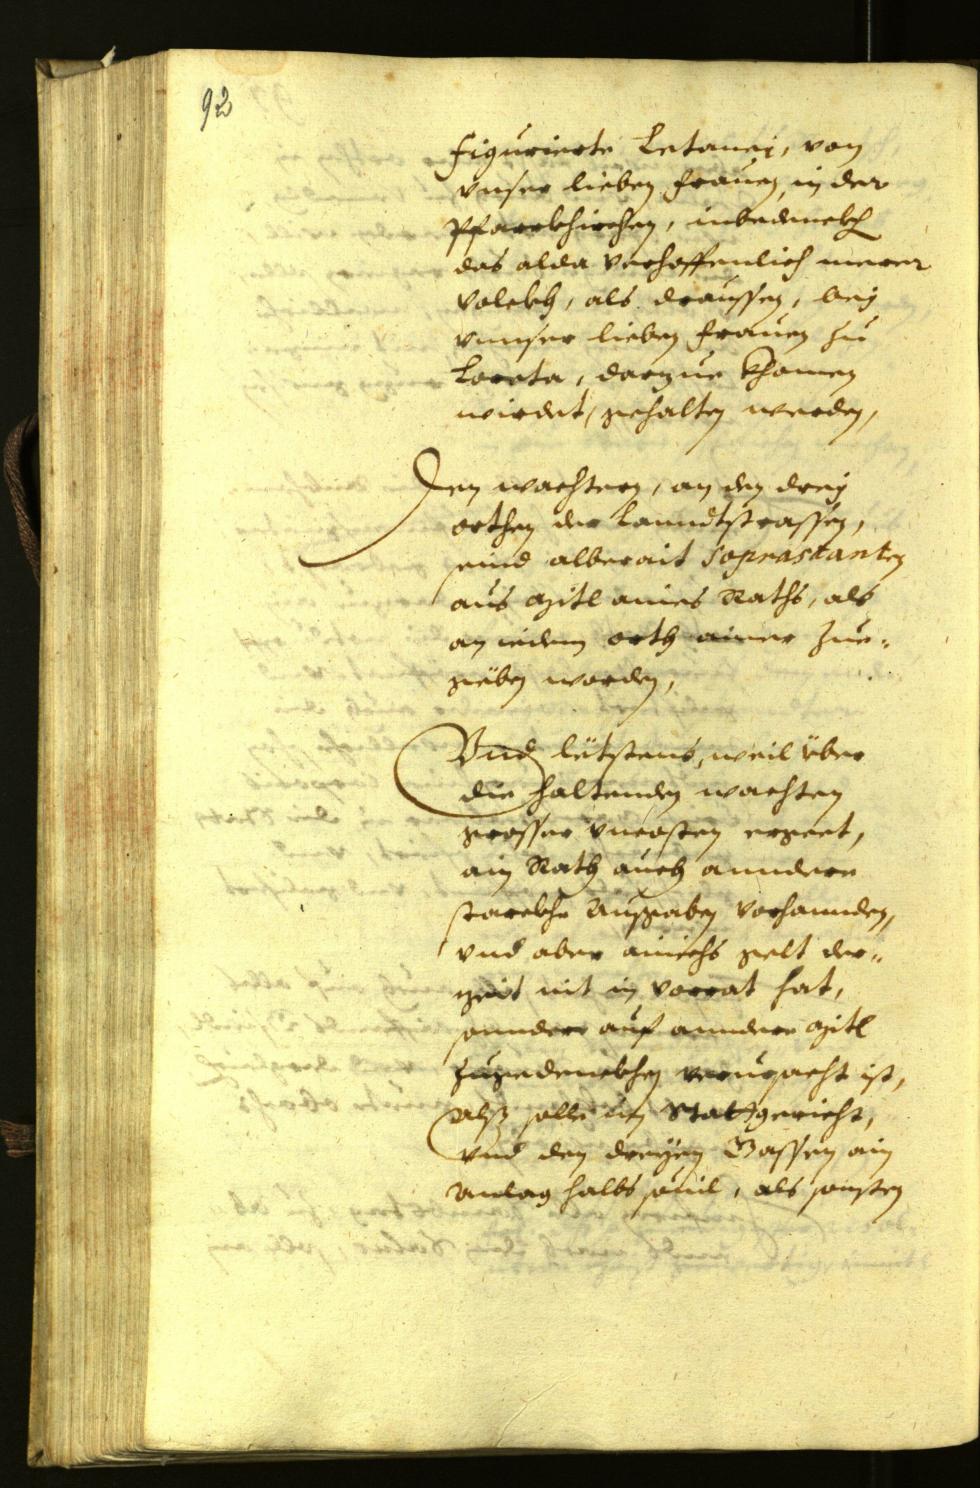 92
figurierte Letanej, von
vnser lieben frauen, in der
Pfarrkhirchen, inbedenckh
das alda verhoffenlich merer
volckh, als draussen, bej
vnnser lieben frauen zu
Loreta, darzue khomen
wirdet, gehalten werden,
Den wachtern, an den drej
orthen der Lanndtstrassen,
seind alberait Soprastanten
aus mitl aines Raths, als
an iedem orth ainer zue-
geben worden,
Vnd letstens, weil über
die haltenden wachten
grosser vncosten ergeet,
ain Rath auch anndere
starckhe Ausgaben vorhannden,
vnd aber ainichs gelt der-
zeit nit in vorrat hat,
sonnder auf anndere mitl
zugedenckhen verursacht ist,
Alß solle im Stattgericht,
vnd den dreyen Gassen ain
Anlag halbs souil, als sonsten